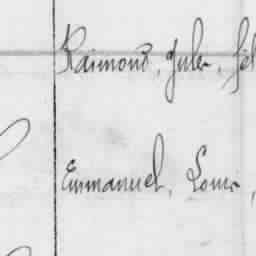 Raimond, Jules, fél
Emmanuel, Louis,